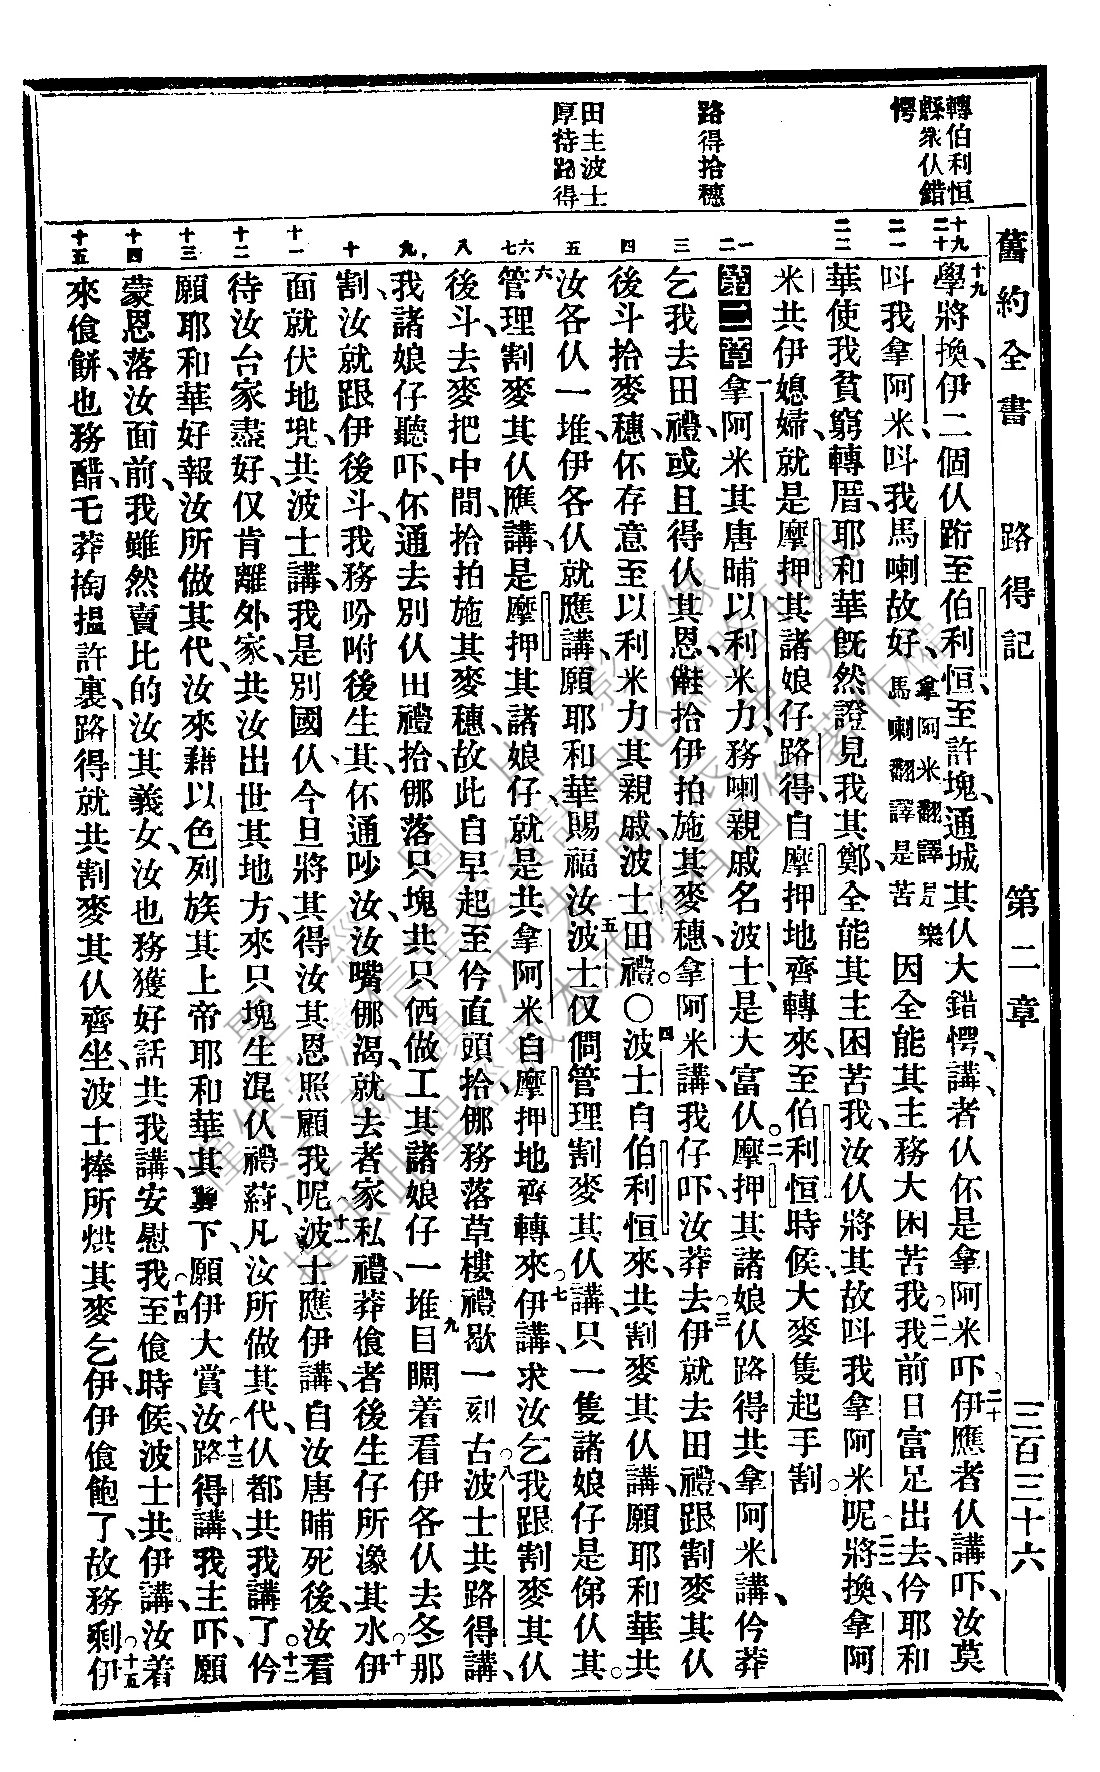 舊約全書 路得記 第二章 三百三十六
轉伯利恒
縣衆仸錯
愕
路得拾穗
田主波士
厚待路得
十九
二十
二一
二二
一
二
三
四
五
六
七
八
九
十
十一
十二
十三
十四
十五
十九學將換、伊二個仸跻至伯利恒、至許塊、通城其仸大錯愕、講者仸伓是拿阿米吓、二十伊應者仸講吓、汝莫
叫我拿阿米、叫我馬喇故好、拿阿米翻譯是樂馬喇翻譯是苦因全能其主務大困苦我、二一我前日富足出去、仱耶和
華使我貧窮轉厝、耶和華旣然證見我其鄭、全能其主困苦我、汝仸將其故叫我拿阿米呢、二二將換拿阿
米共伊媳婦、就是摩押其諸娘仔路得、自摩押地齊轉來、至伯利恒時候、大麥隻起手割。
第二章一拿阿米其唐晡以利米力、務喇親戚名波士、是大富仸。二摩押其諸娘仸路得共拿阿米講、仱莽
乞我去田禮、或且得仸其恩、䧹拾伊拍施其麥穗、拿阿米講我仔吓、汝莽去、三伊就去田禮、跟割麥其仸
後斗拾麥穗、伓存意至以利米力其親戚波士田禮。○四波士自伯利恒來、共割麥其仸講、願耶和華共
汝各仸一堆、伊各仸就應講、願耶和華賜福汝、五波士仅僩管理割麥其仸講、只一隻諸娘仔是俤仸其。
六管理割麥其仸應講、是摩押其諸娘仔、就是共拿阿米自摩押地齊轉來、七伊講、求汝乞我跟割麥其仸
後斗、去麥把中間、拾拍施其麥穗、故此自早起至仱直頭拾、㑚務落草樓禮歇一刻古、八波士共路得講、
我諸娘仔聽吓、伓通去別仸田禮拾、㑚落只塊、共只㑚做工其諸娘仔一堆、九目睭着看伊各仸去冬那
割、汝就跟伊後斗、我務吩咐後生其、伓通吵汝、汝嘴㑚渴、就去者家私禮、莽飡者後生仔所潒其水、十伊
面就伏地、兠共波士講、我是別國仸、今旦將其得汝其恩照顧我呢、十一波士應伊講、自汝唐晡死後、汝看
待汝台家盡好、仅肯離外家、共汝出世其地方、來只塊生混仸禮蒔、凡汝所做其代、仸都共我講了、十二仱
願耶和華好報汝所做其代、汝來藉以色列族其上帝耶和華其翼下、願伊大賞汝、十三路得講、我主吓、願
蒙恩落汝面前、我雖然賣比的汝其義女、汝也務獲好話共我講、安慰我、十四至飡時候、波士共伊講、汝着
來飡餅、也務醋、乇莽搊搵許裏、路得就共割麥其仸齊坐、波士捧所烘其麥乞伊、伊飡飽了、故務剩、十五伊